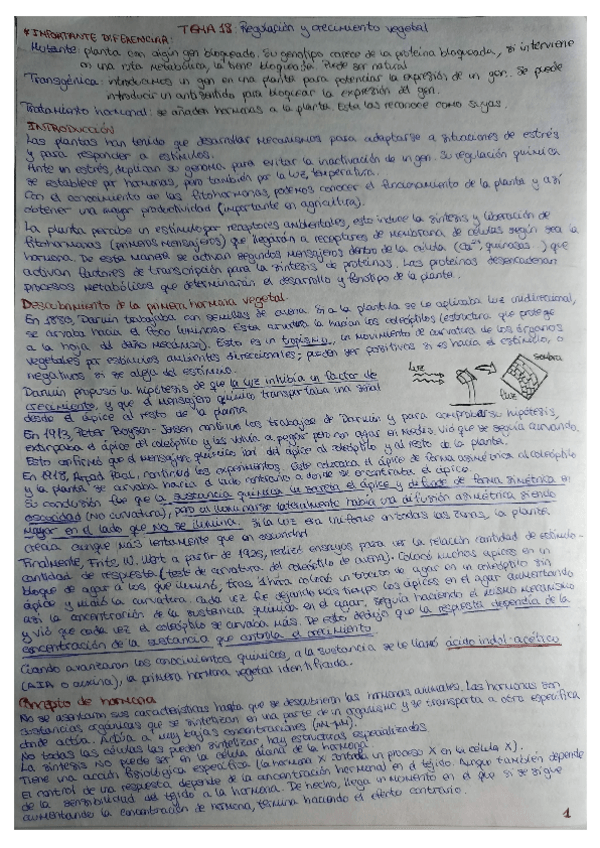 TEMA 18: Regulación y crecimiento vegetal
* IMPORTANTE DIFERENCIAR:
Mutante: planta con algún gen bloqueado. Su genotipo carece de la proteína bloqueada, si interviene
en una ruta metabólica, la tiene bloqueada. Puede ser natural
Transgénica: introducimos un gen en una planta para potenciar la expresión de un gen. Se puede
introducir un antisentido para bloquear la expresión del gen.
Tratamiento hormonal: se añaden hormonas a la planta. Esta las reconoce como suyas.
INTRODUCCIÓN
Las plantas han tenido que desarrollar mecanismos para adaptarse a situaciones de estrés
y para responder a estímulos.
Ante un estrés, duplican su genoma para evitar la inactivación de un gen. Su regulación química
se establece por hormonas, pero también por la luz, temperatura.
Con el conocimiento de las fitohormonas, podemos conocer el funcionamiento de la planta y así
obtener una mayor productividad (importante en agricultura).
La planta percibe un estímulo por receptores ambientales, esto induce la síntesis y liberación de
fitohormonas (primeros mensajeros) que llegarán a receptores de membrana de células según sea la
hormona. De esta manera se activan segundos mensajeros dentro de la célula (Ca²⁺, quinasas...) que
activan factores de transcripción para la síntesis de proteínas. Las proteínas desencadenan
procesos metabólicos que determinarán el desarrollo y fenotipo de la planta.
Descubrimiento de la primera hormona vegetal.
En 1880, Darwin trabajaba con semillas de avena. Si a la plántula se le aplicaba luz unidireccional,
se curvaba hacia el foco luminoso. Esta curvatura la hacían los coleóptilos (estructura que protege
a la hoja del daño mecánico). Esto es un tropismo, un movimiento de curvatura de los órganos
vegetales por estímulos ambientes direccionales; pueden ser positivos si es hacia el estímulo, o
negativos si se aleja del estímulo.
Luz
Sombra
Luz
Darwin propuso la hipótesis de que la luz inhibía un factor de
crecimiento, y que el mensajero químico transportaba una señal
desde el ápice al resto de la planta
En 1913, Peter Boysen-Jensen continuó los trabajos de Darwin y para comprobar su hipótesis,
extirpaba el ápice del coleóptilo y los volvía a pegar pero con agar en medio, vio que se seguía curvando.
Esto confirmó que el mensajero químico iba del ápice al coleóptilo y al resto de la planta.
En 1918, Arpad Paal, continuó los experimentos. Este colocaba el ápice de forma asimétrica al coleóptilo
y la planta se curvaba hacia el lado contrario a donde se encontraba el ápice.
Su conclusión fue que la sustancia química la fabrica el ápice y difunde de forma simétrica en
oscuridad (no curvatura), pero al iluminarse lateralmente había una difusión asimétrica siendo
mayor en el lado que no se ilumina. Si la luz era uniforme en todas las zonas, la planta
crecía aunque más lentamente que en oscuridad
Finalmente, Fritz W. Went a partir de 1926, realizó ensayos para ver la relación cantidad de estímulo -
cantidad de respuesta (test de curvatura del coleóptilo de avena). Colocó muchos ápices en un
bloque de agar a los que iluminó, tras 1 hora colocó un trozo de agar en un coleóptilo sin
ápice y midió la curvatura. Cada vez fue dejando más tiempo los ápices en el agar aumentando
así la concentración de la sustancia química en el agar, seguía haciendo el mismo mecanismo
y vió que cada vez el coleóptilo se curvaba más. De esto dedujo que la respuesta dependía de la
concentración de la sustancia que controla el crecimiento.
Cuando avanzaron los conocimientos químicos, a la sustancia se le llamó ácido indol-acético
(AIA o auxina), la primera hormona vegetal identificada.
Concepto de hormona
No se asentaron sus características hasta que se descubrieron las hormonas animales. Las hormonas son
sustancias orgánicas que se sintetizan en una parte de un organismo y se transporta a otro específica
donde actúa. Actúa a muy bajas concentraciones (nM-µM).
No todas las células las pueden sintetizar, hay estructuras especializadas
La síntesis no puede ser en la célula diana de la hormona.
Tiene una acción fisiológica específica (la hormona X controla un proceso X en la célula X).
El control de una respuesta depende de la concentración hormonal en el tejido. Aunque también depende
de la sensibilidad del tejido a la hormona. De hecho, llega un momento en el que si se sigue
aumentando la concentración de hormona, termina haciendo el efecto contrario.
1